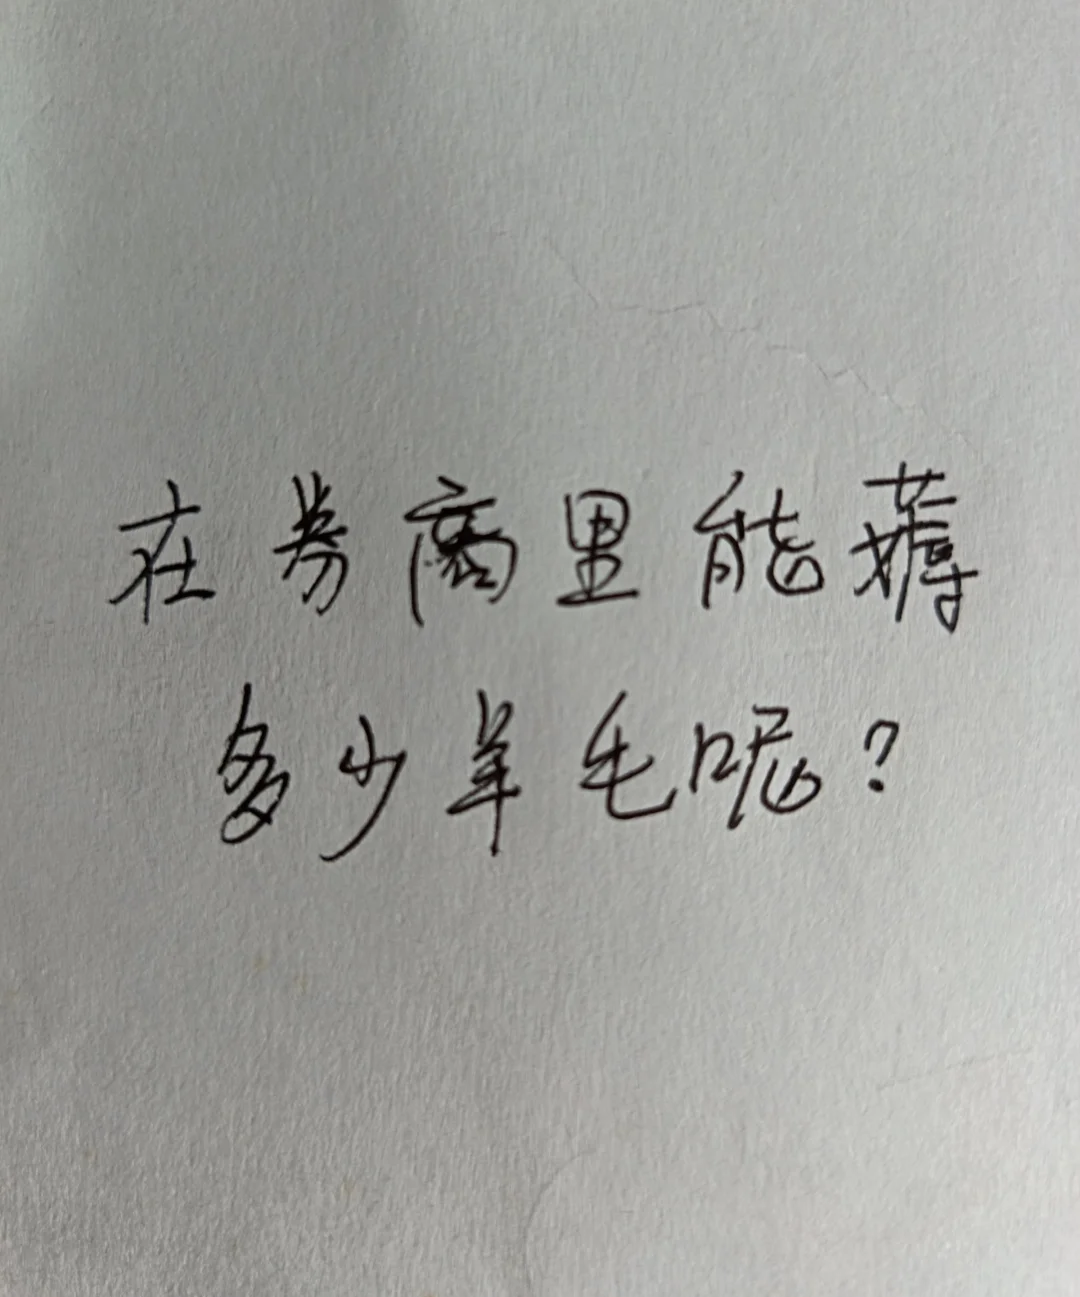 在券商里能薅
多少羊毛呢?